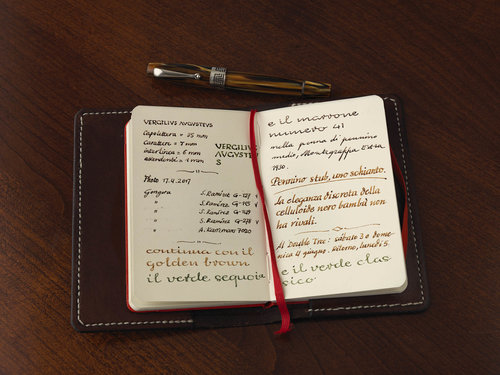 VERGILIVS AVGVSTEVS
Capolettera = 25 mm
Carattere = 7 mm
interlinea = 6 mm
ascendenti = 4 mm
VERGILIV
AVGVSTE
S
Photo 17.4.2017
Gongora S. Ramirez G-127 V
" S. Ramirez G-123 V
" S. Ramirez
" S. Ramirez G-278 V
" A. 7020
continua con il
golden brown
il verde sequoia
e il marrone
numero 41
nella penna di pennino
medio, Montegrappa Extra
1930.
Pennino stub, uno schianto.
La eleganza discreta della
celluloide nero bambù non
ha rivali.
Al Double Tree: sabato 3 e dome-
nica 4 giugno. Ritorno, lunedì 5.
e il verde clas
sico